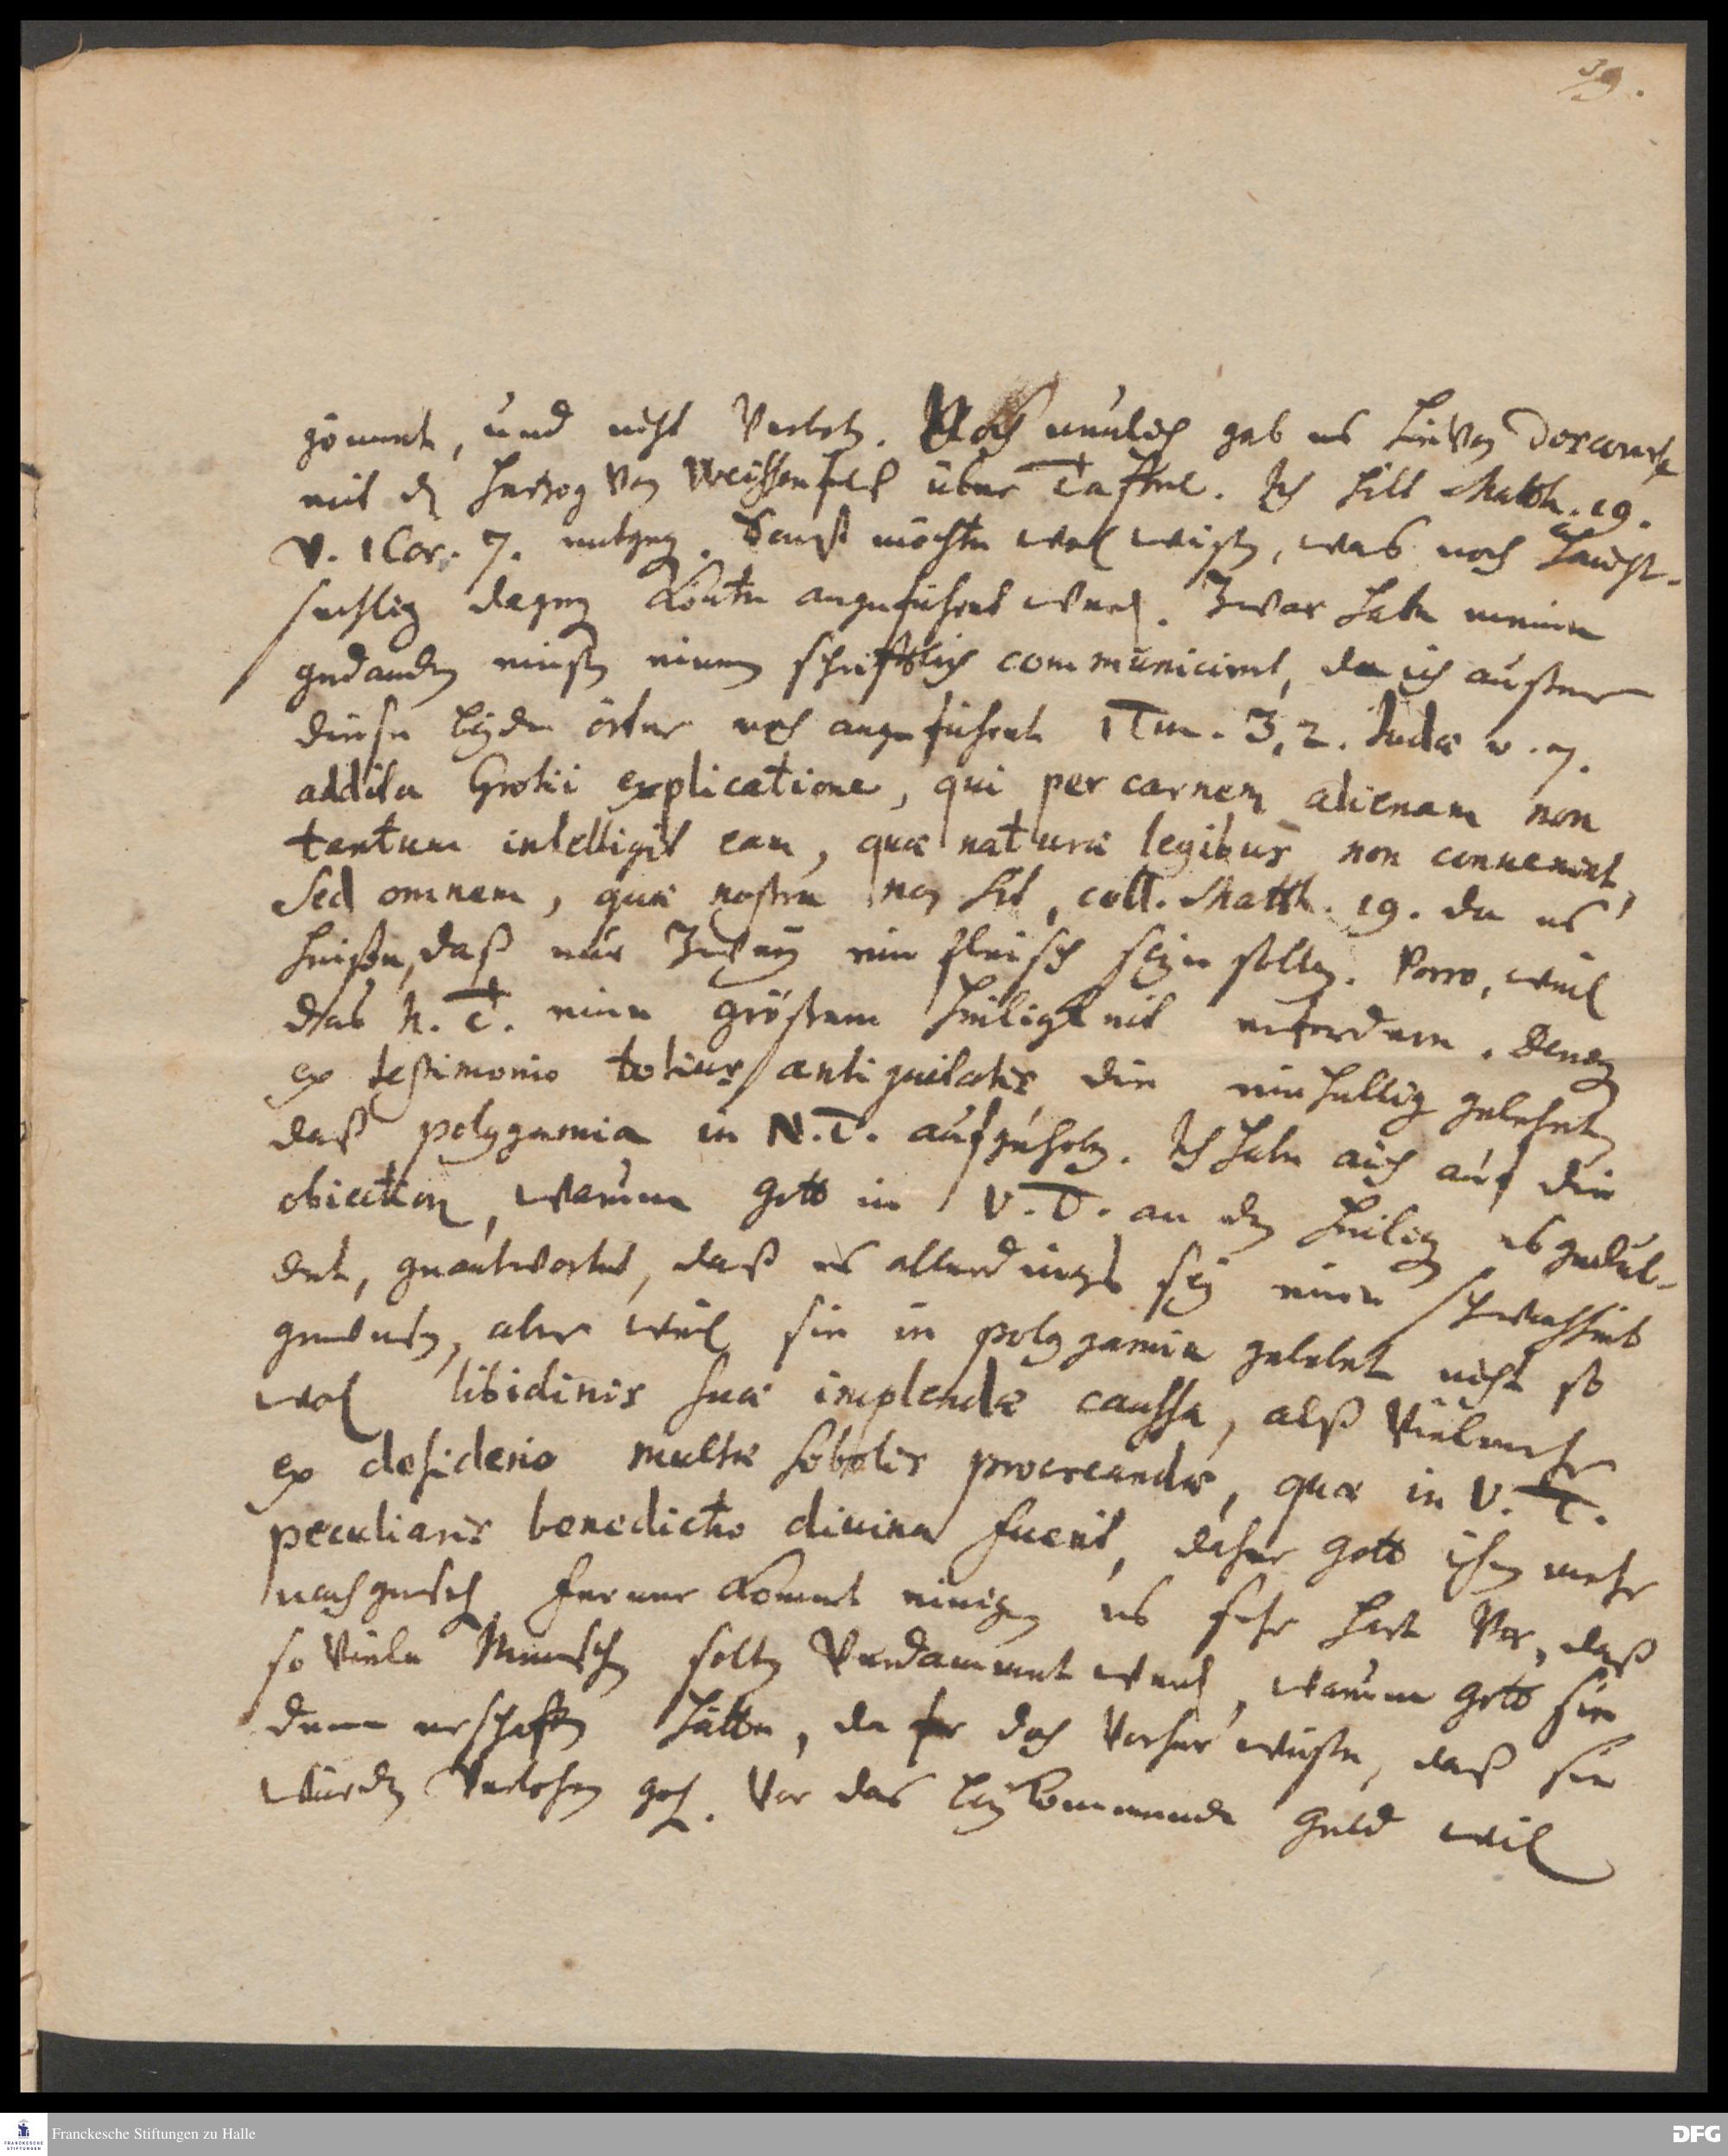 39.
gönnet, und nicht verbothen. Noch neulich gab es hievon Discourse
mit dem Hertzog von Weissenfels über Taffel. Ich hielt Matth. 19.
v. 1 Cor. 7. entgegen. Sonst möchte wol wissen, was noch haupt-
sächlig dagegen könte angeführet werden. Zwar habe meine
gedancken einsten einem schrifftlich communiciret, da ich ausser
diese beyde örter noch angeführet 1 Tim. 3, 2. Judæ v. 7.
addita Grotii explicatione, qui per carnem alienam non
tantum intelligit eam, quæ naturæ legibus non conveniat,
sed omnem, quæ nostra non sit, coll. Matth. 19. da es
heisse, daß nur Zwey ein fleisch seyn sollen. Porro, weil
das N. T. eine grössere heiligkeit erfordere. Denn
ex testimonio totius antiquitatis, die einhellig gelehret,
daß polygamia in N. T. aufgehoben. Ich habe auch auf die
obiection, warum Gott im V. T. an den heiligen es gedul-
det, geantwortet, daß es allerdings sey eine schwachheit
gewesen, aber weil sie in polygamia gelebet nicht so
wol libidinis suæ implendæ caussa, alß vielmehr
ex desiderio multæ sobolis procreandæ, quæ in V. T.
peculiaris benedictio divina fuerit, daher Gott ihnen mehr
nachgesehen. Ferner kommet einigen es sehr hart vor, daß
so viele Menschen solten verdammet werden, warum Gott sie
denn erschaffen hätte, da er doch vorher wüste, daß sie
würden verlohren gehen. Vor das beykommende Geld weil
Franckesche Stiftungen zu Halle
DFG